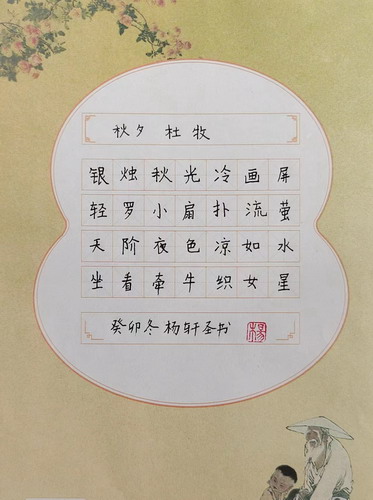 秋夕 杜牧
银烛秋光冷画屏
轻罗小扇扑流萤
天阶夜色凉如水
坐看牵牛织女星
癸卯冬杨轩圣书
杨